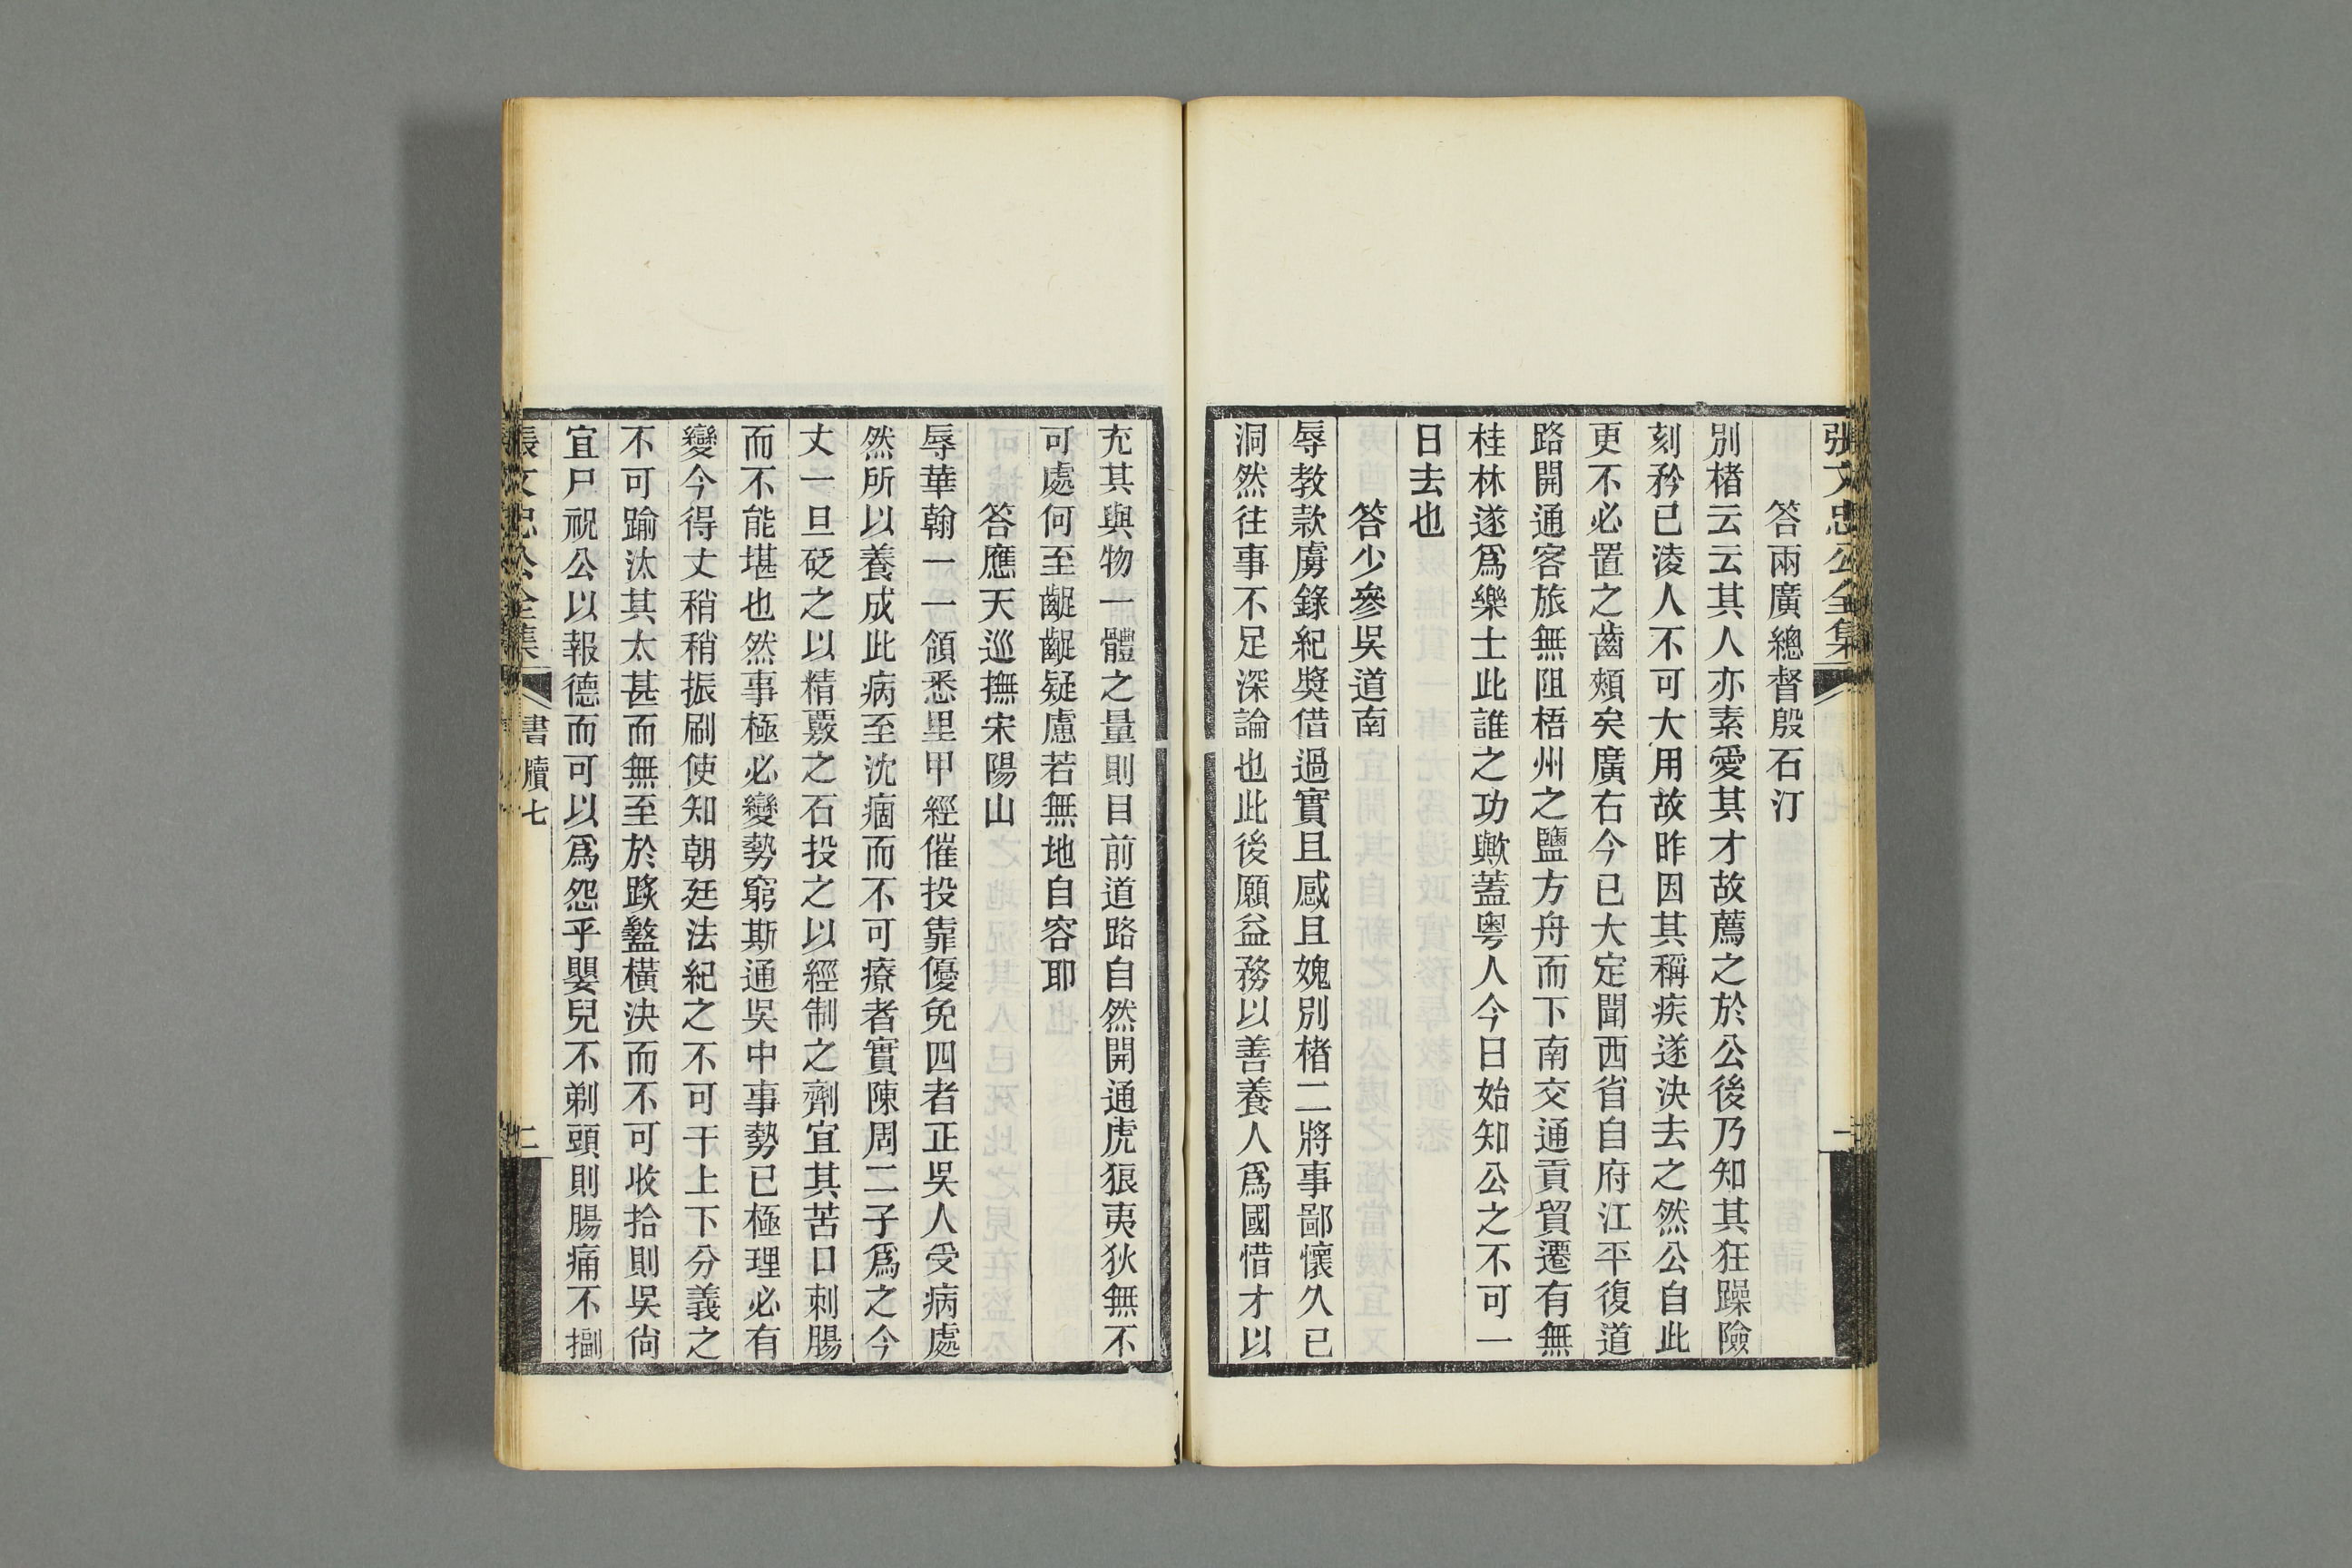 張文忠公全集
答兩廣總督殷石汀
別楮云云其人亦素愛其才故薦之於公後乃知其狂躁險
刻矜已淩人不可大用故昨因其稱疾遂決去之然公自此
更不必置之齒頰矣廣右今已大定聞西省自府江平復道
路開通客旅無阻梧州之鹽方舟而下南交通貢貿遷有無
桂林遂爲樂土此誰之功歟蓋粤人今日始知公之不可一
日去也
答少參吳道南
辱教款虜錄紀獎借過實且感且媿別楮二將事鄙懷久已
洞然往事不足深論也此後願益務以善養人爲國惜才以
充其與物一體之量則目前道路自然開通虎狼夷狄無不
可處何至齪齪疑慮若無地自容耶
答應天巡撫宋陽山
辱華翰一一領悉里甲經催投靠優免四者正吳人受病處
然所以養成此病至沈痼而不可療者實陳周二子爲之今
丈一旦砭之以精覈之石投之以經制之劑宜其苦口刺腸
而不能堪也然事極必變勢窮斯通吳中事勢已極理必有
變今得丈稍稍振刷使知朝廷法紀之不可干上下分義之
不可踰汰其太甚而無至於踐盭橫決而不可收拾則吳尙
宜尸祝公以報德而可以爲怨乎嬰兒不剃頭則腸痛不㨽
張文忠公全集 書牘七 二